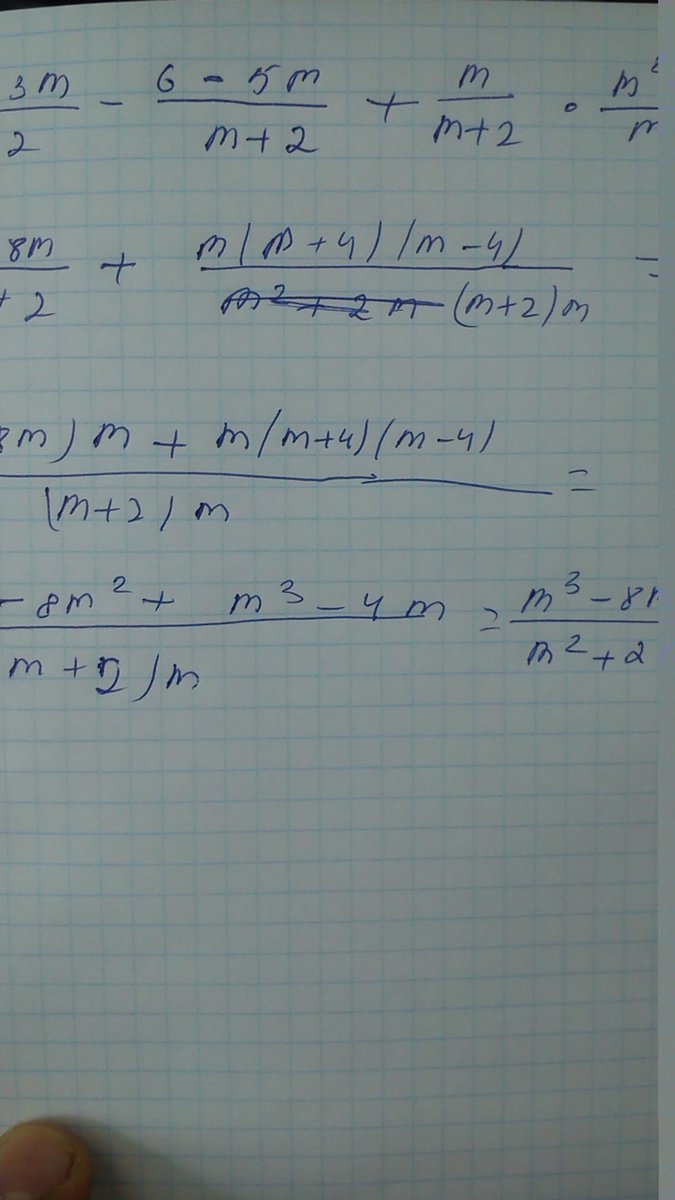 3m/2 - (6 - 5m)/(m+2) + m/(m+2) · m
8m/+2 + m(m+4)(m-4)/((m+2)m) =
8m)m + m(m+4)(m-4)/((m+2)m) =
-8m² + m³ - 4m/m+2)m = m³ - 8/m² + 2